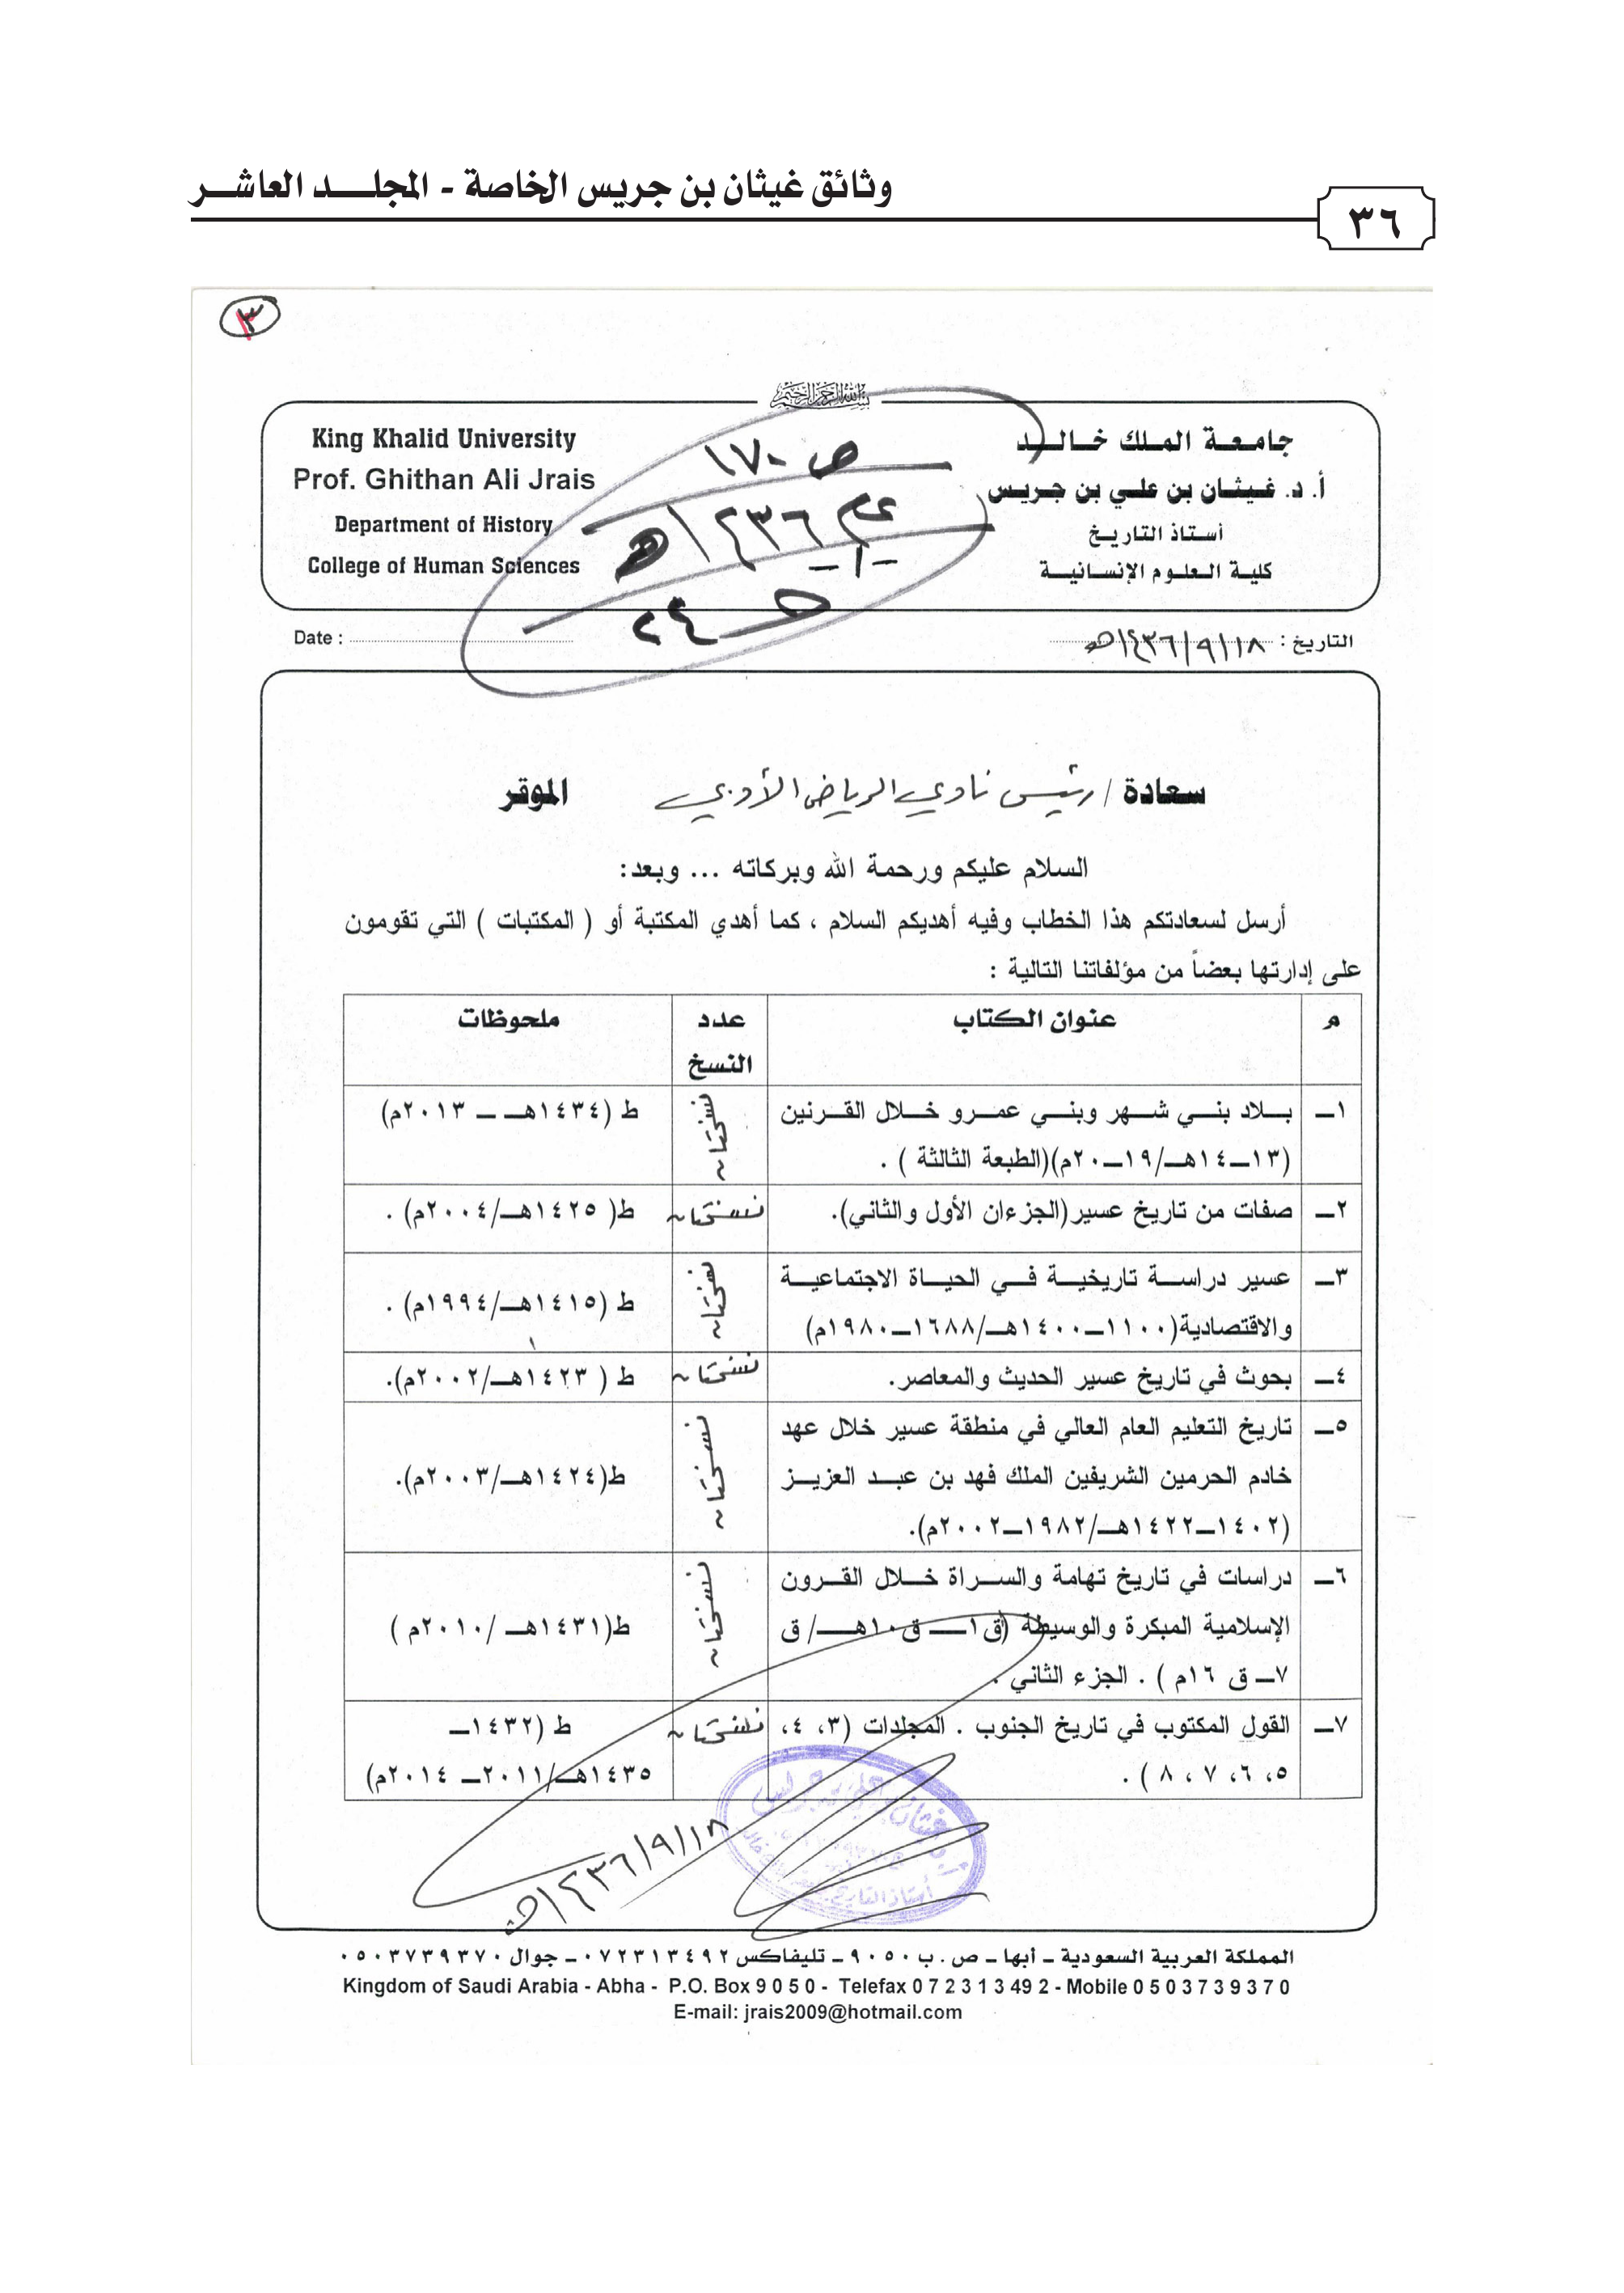 وثائق غيثان بن جريس الخاصة - المجلـــد العاشـــر
٣٦
٣
بسم الله الرحمن الرحيم
جامعـة الملك خـالـد
أ. د. غيثـان بن علـي بن جريس
أستاذ التاريـخ
كليـة العلـوم الإنسـانيـة
King Khalid University
Prof. Ghithan Ali Jrais
Department of History
College of Human Sciences
ص ١٧٠
١٤٣٦هـ
٢٤
التاريخ : ١٤٣٦/٩/١٨هـ
Date :
سعادة / رئيس نادي الرياض الأدبي الموقر
السلام عليكم ورحمة الله وبركاته ... وبعد:
أرسل لسعادتكم هذا الخطاب وفيه أهديكم السلام ، كما أهدي المكتبة أو ( المكتبات ) التي تقومون
على إدارتها بعضاً من مؤلفاتنا التالية :
م عنوان الكتاب عدد النسخ ملحوظات
١ــ بـلاد بنـي شـهر وبنـي عمـرو خـلال القـرنين
(١٣ــ١٤هـ/١٩ــ٢٠م)(الطبعة الثالثة ) .
نسختان
ط (١٤٣٤هـ ــ ٢٠١٣م)
٢ــ صفات من تاريخ عسير(الجزءان الأول والثاني).
نسختان
ط( ١٤٢٥هـ/٢٠٠٤م) .
٣ــ عسير دراسـة تاريخيـة فـي الحيـاة الاجتماعيـة
والاقتصادية(١١٠٠ــ١٤٠٠هـ/١٦٨٨ــ١٩٨٠م)
نسختان
ط (١٤١٥هـ/١٩٩٤م) .
٤ــ بحوث في تاريخ عسير الحديث والمعاصر.
نسختان
ط ( ١٤٢٣هـ/٢٠٠٢م).
٥ــ تاريخ التعليم العام العالي في منطقة عسير خلال عهد
خادم الحرمين الشريفين الملك فهد بن عبـد العزيـز
(١٤٠٢ــ١٤٢٢هـ/١٩٨٢ــ٢٠٠٢م).
نسختان
ط(١٤٢٤هـ/٢٠٠٣م).
٦ــ دراسات في تاريخ تهامة والسـراة خـلال القـرون
الإسلامية المبكرة والوسيطة (ق١ــ ق١٠هـ/ ق
٧ــ ق ١٦م ) . الجزء الثاني .
نسختان
ط(١٤٣١هـ /٢٠١٠م )
٧ــ القول المكتوب في تاريخ الجنوب . المجلدات (٣، ٤،
٥، ٦، ٧ ، ٨ ) .
نسختان
ط (١٤٣٢ــ
١٤٣٥هـ/٢٠١١ــ ٢٠١٤م)
١٤٣٦/٩/١٨هـ
أستاذ التاريخ
المملكة العربية السعودية ـ أبهـا ـ ص . ب ٩٠٥٠ ـ تليفاكس ٠٧٢٣١٣٤٩٢ ـ جوال ٠٥٠٣٧٣٩٣٧٠
Kingdom of Saudi Arabia - Abha - P.O. Box 9 0 5 0 - Telefax 0 7 2 3 1 3 49 2 - Mobile 0 5 0 3 7 3 9 3 7 0
E-mail: jrais2009@hotmail.com